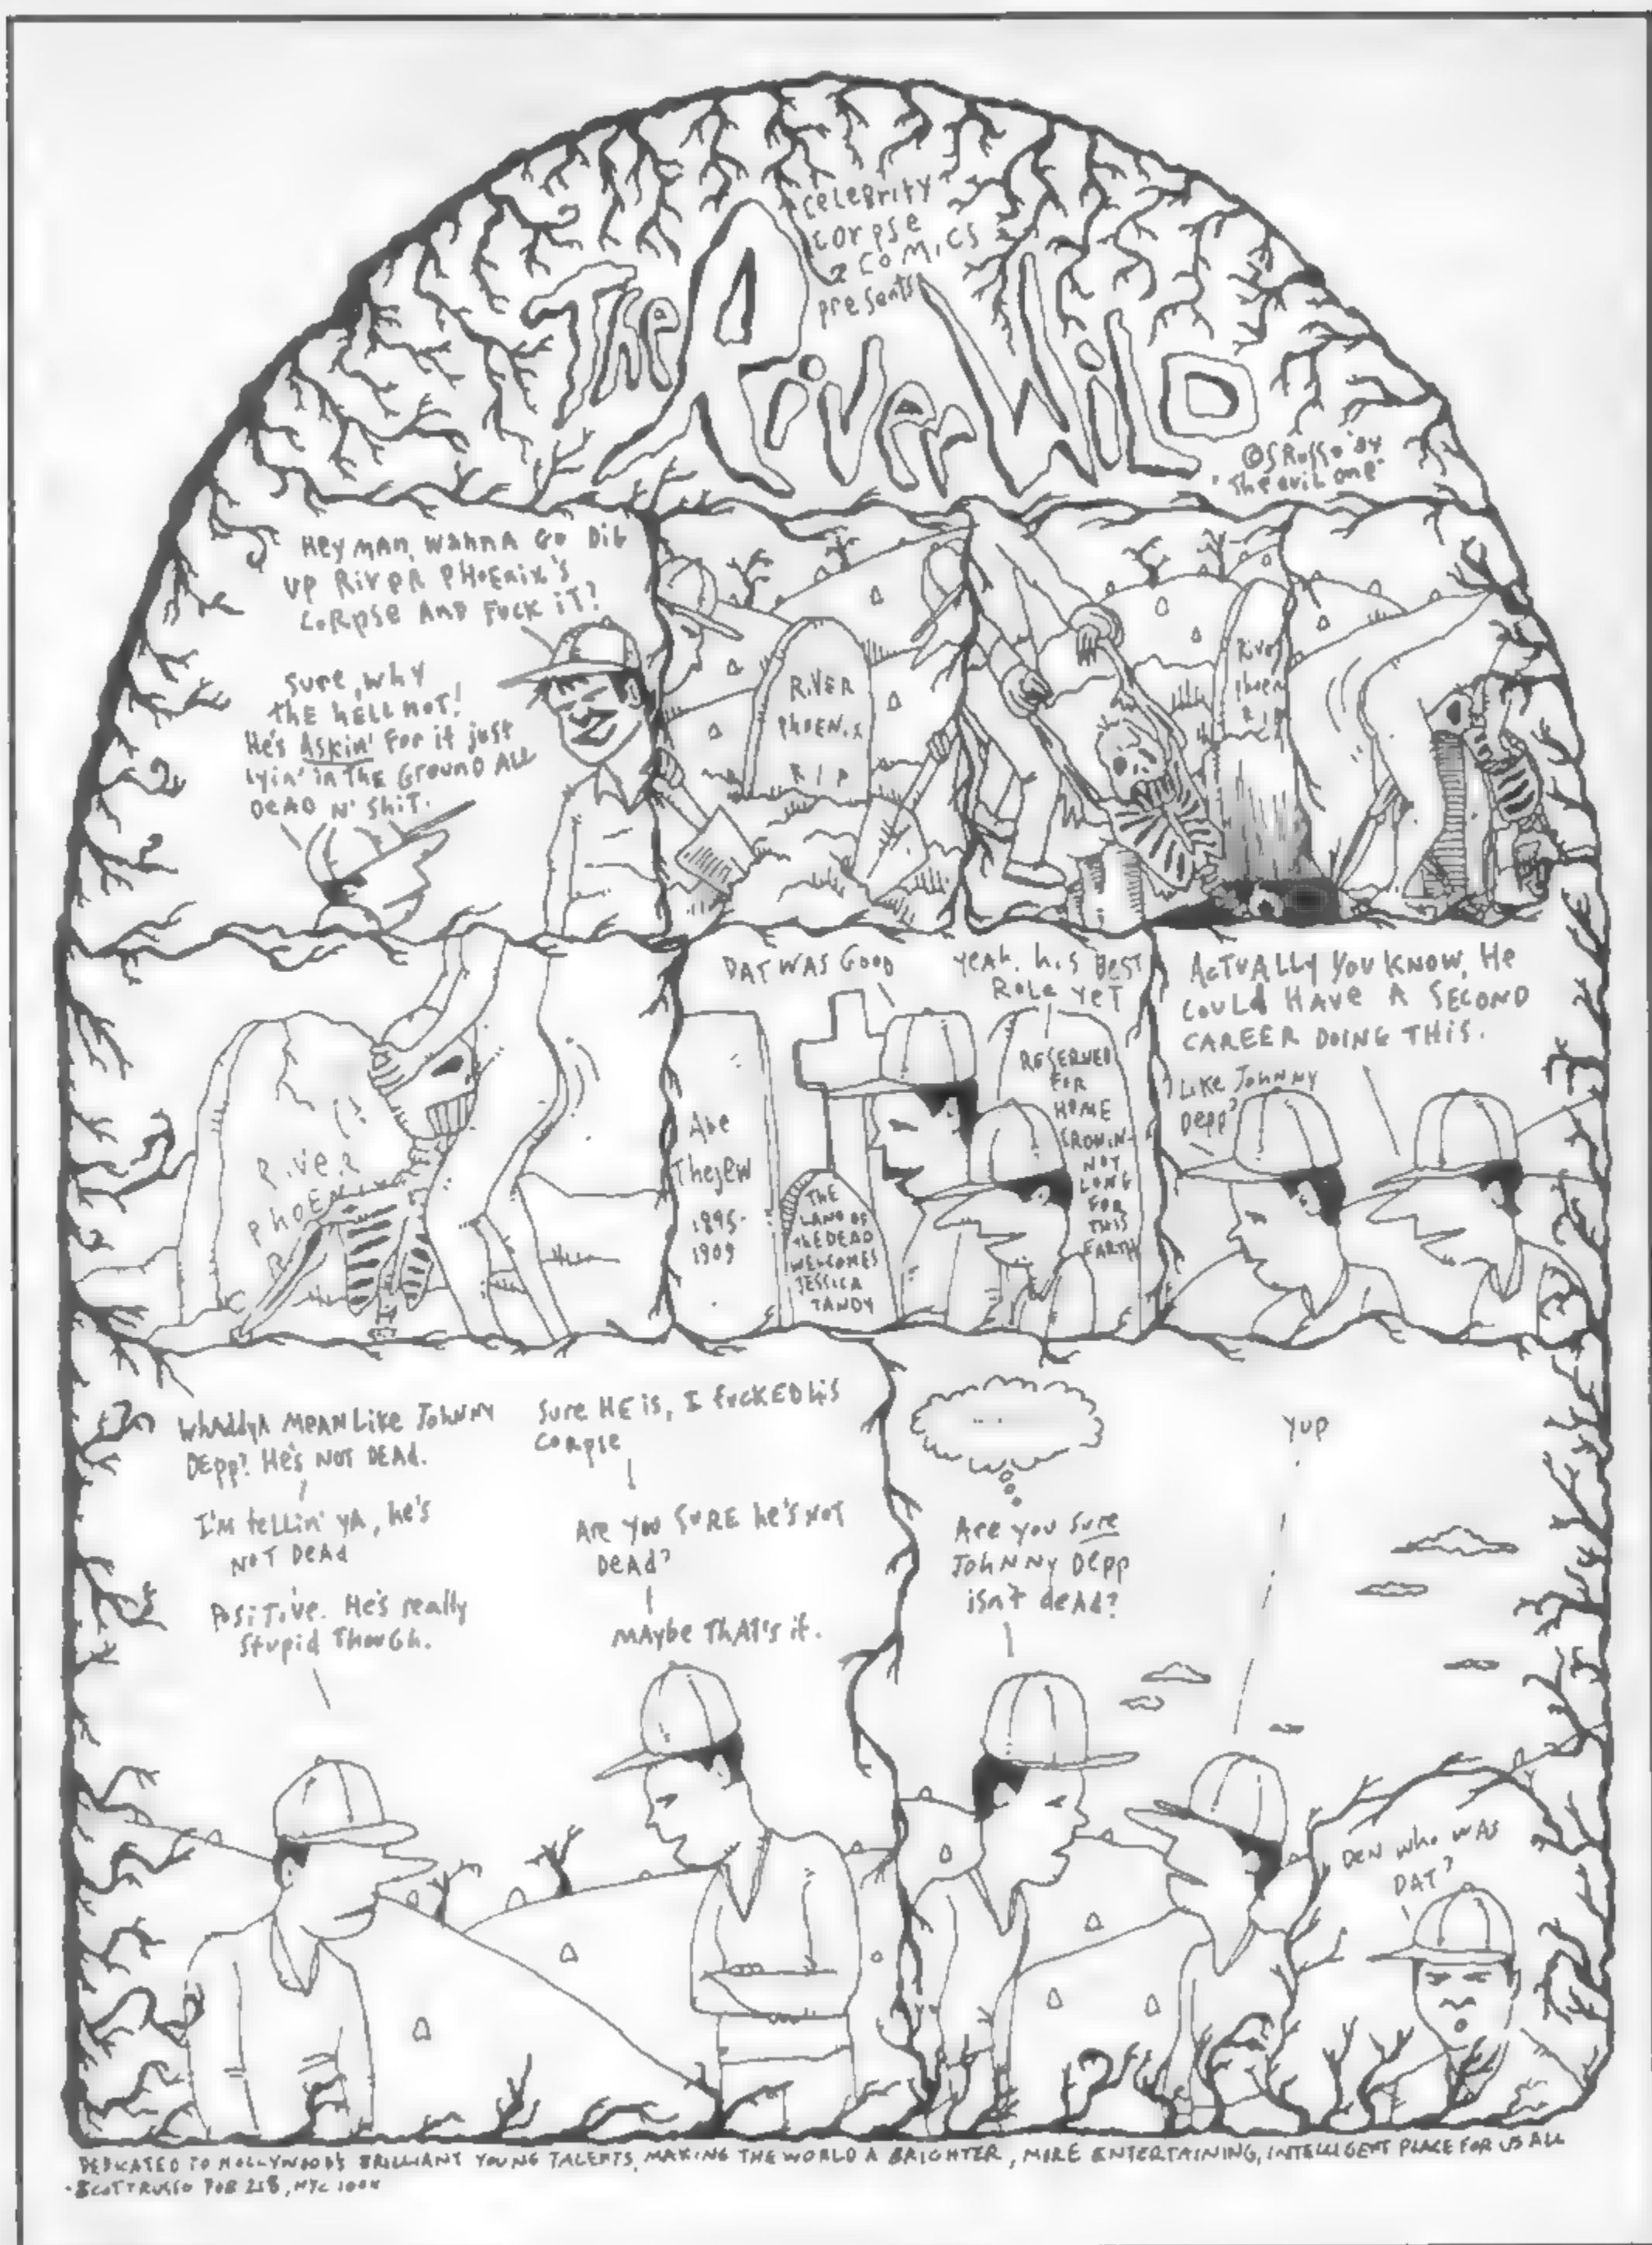 CELEBRITY
CORPSE
COMICS
presents
The River Wild
©SRusso '94
"The evil one"
Hey man, wanna go dig
up River Phoenix's
corpse and fuck it?
Sure, why
the hell not!
He's askin' for it just
lyin' in the ground all
dead n' shit.
RIVER
PHOENIX
RIP
River
Phoen
RIP
RIVER
PHOENIX
R
DAT WAS GOOD
Yeah, his best
role yet
Abe
Thejew
1895-
1909
THE
LAND OF
THE DEAD
WELCOMES
JESSICA
TANDY
RESERVED
FOR
HUME
CRONIN-
NOT
LONG
FOR
THIS
EARTH
Actually you know, he
could have a second
career doing this.
Like Johnny
Depp?
Whaddya mean like Johnny
Depp? He's not dead.
Sure he is, I fucked his
corpse
I'm tellin' ya, he's
not dead
Are you SURE he's not
dead?
Positive. He's really
stupid though.
Maybe that's it.
...
Are you sure
Johnny Depp
isn't dead?
Yup
Den who was
dat?
DEDICATED TO HOLLYWOOD'S BRILLIANT YOUNG TALENTS, MAKING THE WORLD A BRIGHTER, MORE ENTERTAINING, INTELLIGENT PLACE FOR US ALL
-SCOTT RUSSO POB 258, NYC